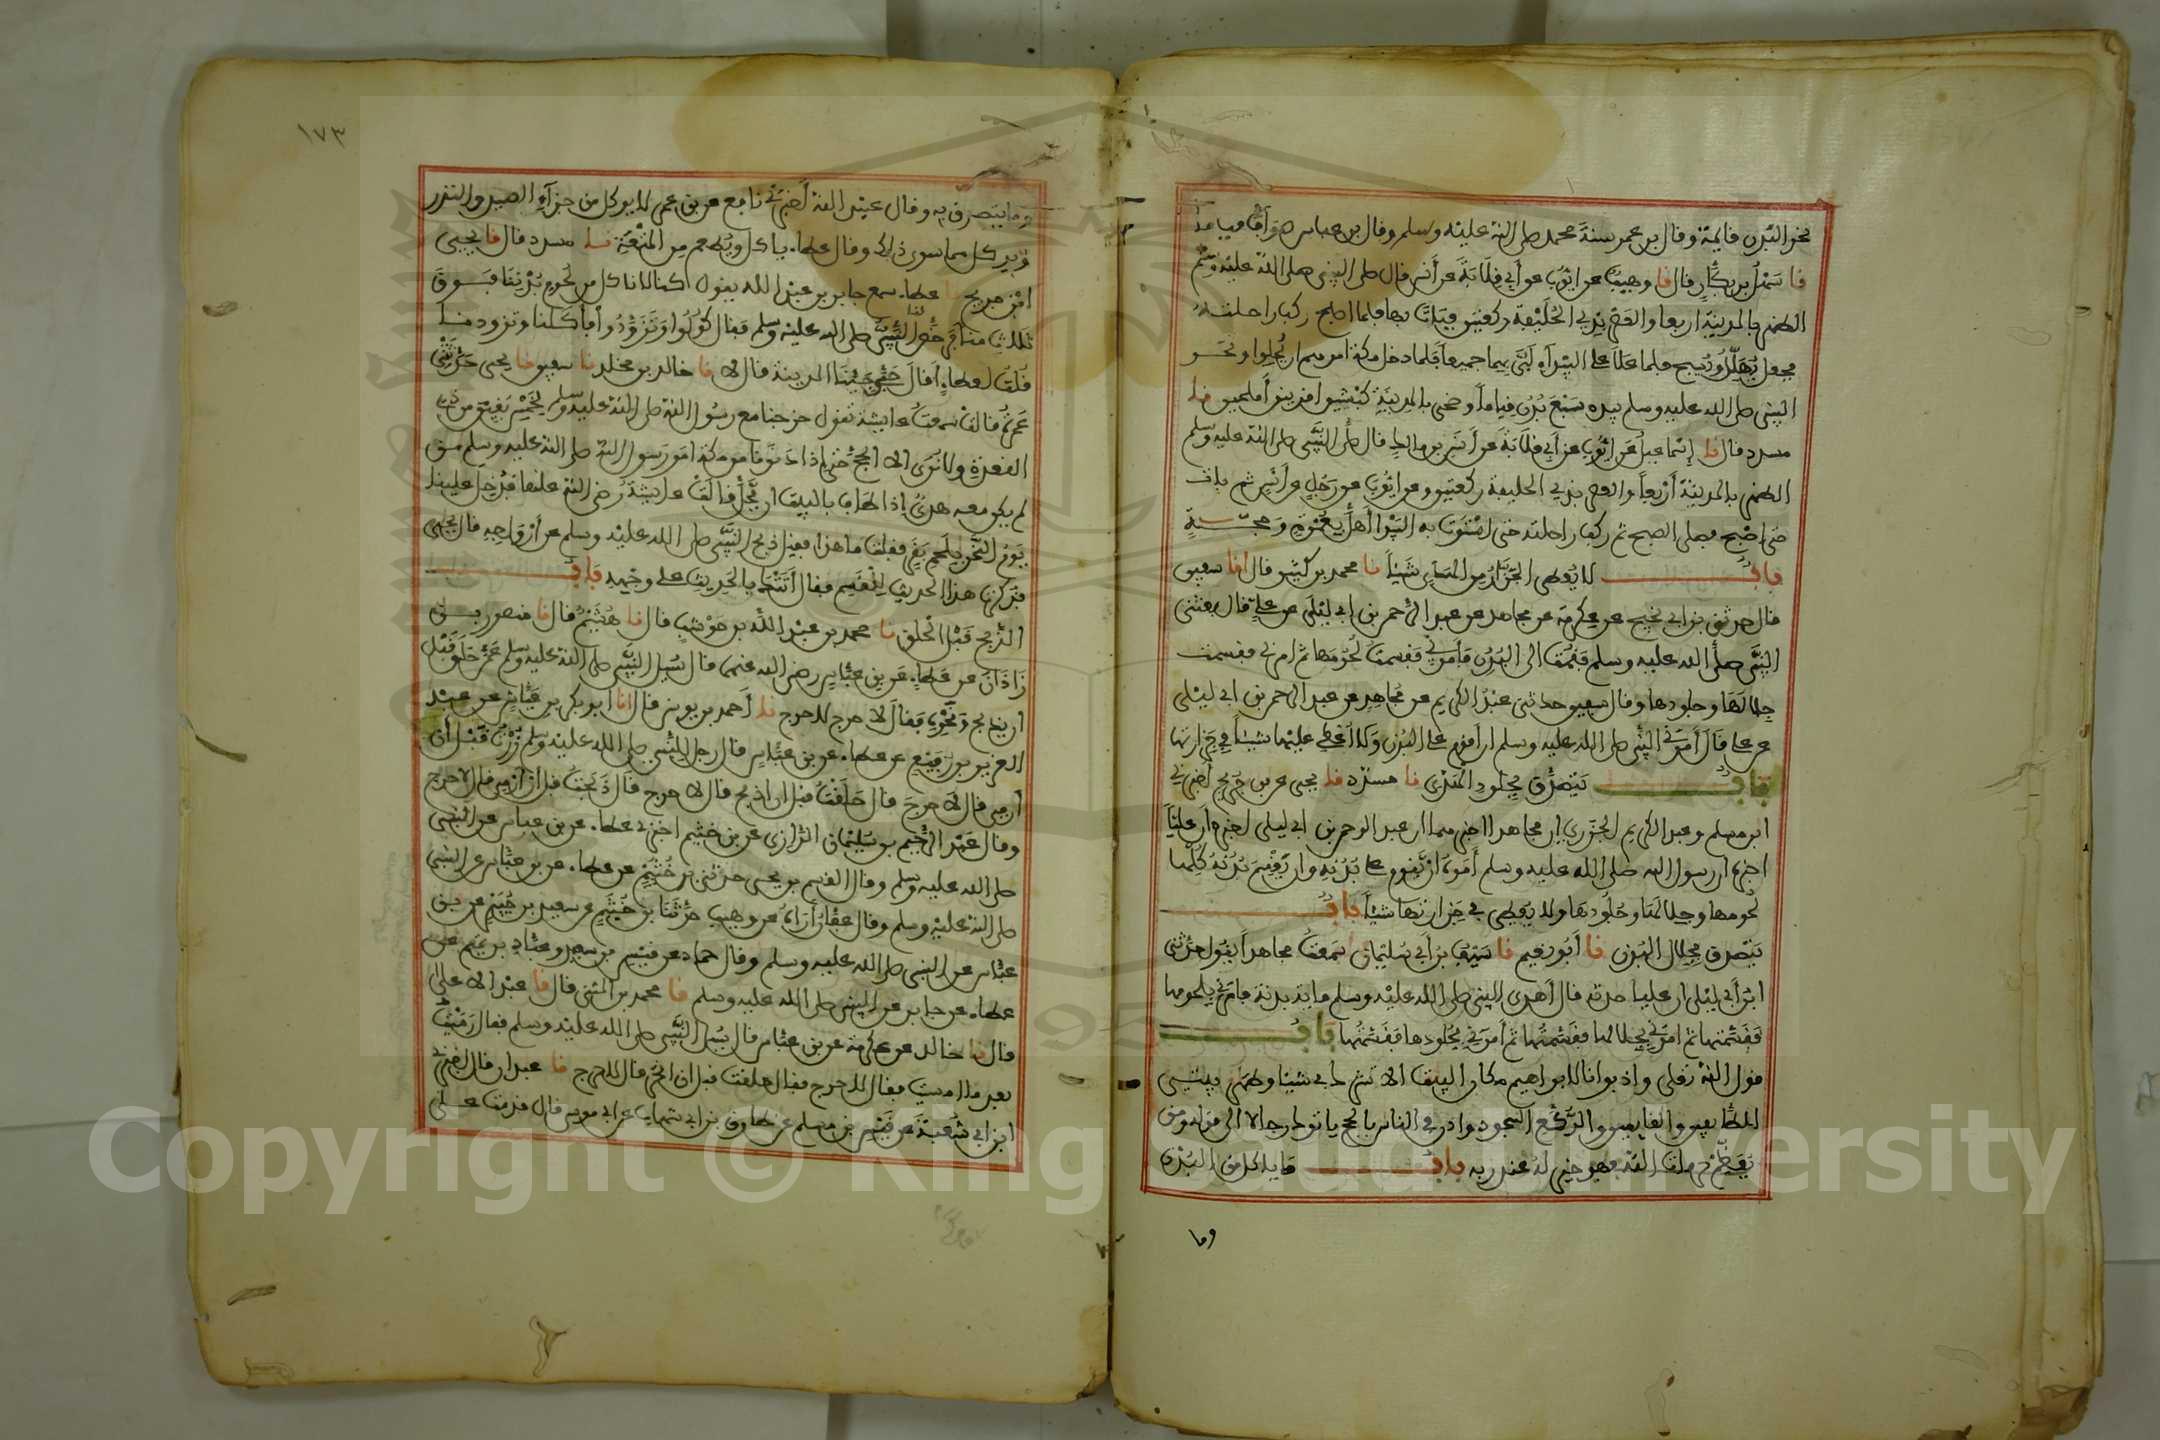 نحر البدن قايمة وقال بن عمر سنة محمد صلى الله عليه وسلم وقال بن عباس صوآف قياما
نا سهل بن بكار قال نا وهيب عن ايوب عن أبي قلابة عن أنس قال صلى النبي صلى الله عليه وسلم
الظهر بالمدينة اربعا والعصر بذي الحليفة ركعتين فبات بها فلما اصبح ركب راحلته
فجعل يهلل ويسبح فلما علا على البيدآء لبى بهما جميعا فلما دخل مكة امرهم ان يحلوا ونحر
النبي صلى الله عليه وسلم بيده سبع بدن قياما وضحى بالمدينة كبشين اقرنين أملحين نا
مسدد قال نا إسماعيل عن ايوب عن أبي قلابة عن أنس بن مالك قال صلى النبي صلى الله عليه وسلم
الظهر بالمدينة أربعا والعصر بذي الحليفة ركعتين وعن ايوب عن رجل عن أنس ثم بات
حتى اصبح فصلى الصبح ثم ركب راحلته حتى استوت به البيدا أهل بعمرة وحجة
باب لا يعطى الجزار من الهدي شيئا نا محمد بن كثير قال انا سفين
قال حدثني بن ابي نجيح عن مجاهد عن عبد الرحمن بن ابي ليلى عن علي قال بعثني
النبي صلى الله عليه وسلم فقمت الى البدن فأمرني فقسمت لحومها ثم امرني فقسمت
جلالها وجلودها وقال سفين حدثني عبد الكريم عن مجاهد عن عبد الرحمن بن ابي ليلى
عن علي قال أمرني النبي صلى الله عليه وسلم ان أقوم على البدن ولا أعطي عليها شيئا في جزارتها
باب يتصدق بجلود الهدي نا مسدد نا يحيى عن بن جريج أخبرني
ابن مسلم وعبد الكريم الجزري ان مجاهدا اخبرهما ان عبد الرحمن بن ابي ليلى اخبره ان عليا
اخبره ان رسول الله صلى الله عليه وسلم أمره ان يقوم على بدنه وان يقسم بدنه كلها
لحومها وجلالها وجلودها ولا يعطي في جزارتها شيئا باب
يتصدق بجلال البدن نا أبو نعيم نا سيف بن أبي سليمان سمعت مجاهدا يقول حدثني
ابن أبي ليلى ان عليا حدثه قال أهدى النبي صلى الله عليه وسلم ماية بدنة فامرني بلحومها
فقسمتها ثم امرني بجلالها فقسمتها ثم أمرني بجلودها فقسمتها باب
قول الله تعلى واذ بوانا لابراهيم مكان البيت الا تشرك بي شيئا وطهر بيتي
للطايفين والقايمين والركع السجود واذن في الناس بالحج ياتوك رجالا الى قوله ومن
يعظم حرمات الله فهو خير له عند ربه باب ما ياكل من البدن
وما
١٧٣
وما يتصدق به وقال عبيد الله أخبرني نافع عن بن عمر لا يوكل من جزآء الصيد والنذر
ويوكل مما سوى ذلك وقال عطاء ياكل ويطعم من المتعة نا مسدد قال نا يحيى
ابن جريج نا عطاء سمع جابر بن عبد الله يقول كنا لا ناكل من لحوم بدننا فوق
ثلاث منى فرخص لنا النبي صلى الله عليه وسلم فقال كلوا وتزودوا فأكلنا وتزودنا
قلت لعطاء أقال حتى جينا المدينة قال لا نا خالد بن مخلد نا سليمن نا يحيى حدثتني
عمرة قالت سمعت عايشة تقول خرجنا مع رسول الله صلى الله عليه وسلم لخمس بقين من ذي
القعدة ولا نرى الا الحج حتى إذا دنونا من مكة امر رسول الله صلى الله عليه وسلم من
لم يكن معه هدي إذا طاف بالبيت ان يحل قالت عايشة رضى الله عنها فدخل علينا
يوم النحر بلحم بقر فقلت ما هذا فقيل ذبح النبي صلى الله عليه وسلم عن أزواجه قال يحيى
فذكرت هذا الحديث للقسم فقال أتتك بالحديث على وجهه باب
الذبح قبل الحلق نا محمد بن عبد الله بن حوشب قال نا هشيم قال نا منصور بن
زاذان عن عطاء عن بن عباس رضى الله عنهما قال سئل النبي صلى الله عليه وسلم عمن حلق قبل
ان يذبح ونحوه فقال لا حرج لا حرج نا أحمد بن يونس قال انا ابو بكر بن عياش عن عبد
العزيز بن رفيع عن عطاء عن بن عباس قال رجل للنبي صلى الله عليه وسلم زرت قبل أن
أرمي قال لا حرج قال حلقت قبل ان اذبح قال لا حرج قال ذبحت قبل ان أرمي قال لا حرج
وقال عبد الرحيم بن سليمان الرازي عن بن خثيم اخبرني عطاء عن بن عباس عن النبي
صلى الله عليه وسلم وقال القسم بن يحيى حدثني بن خثيم عن عطاء عن بن عباس عن النبي
صلى الله عليه وسلم وقال عفان أراه عن وهيب حدثنا بن خثيم عن سعيد بن جبير عن بن
عباس عن النبي صلى الله عليه وسلم وقال حماد عن قيس بن سعد وعباد بن منصور عن
عطاء عن جابر عن النبي صلى الله عليه وسلم نا محمد بن المثنى قال نا عبد الاعلى
قال نا خالد عن عكرمة عن بن عباس قال سئل النبي صلى الله عليه وسلم فقال رميت
بعد ما امسيت فقال لا حرج فقال حلقت قبل ان انحر قال لا حرج نا عبدان قال اخبرني
ابي عن شعبة عن قيس بن مسلم عن طارق بن شهاب عن ابي موسى قال قدمت على
Copyright © King Saud University